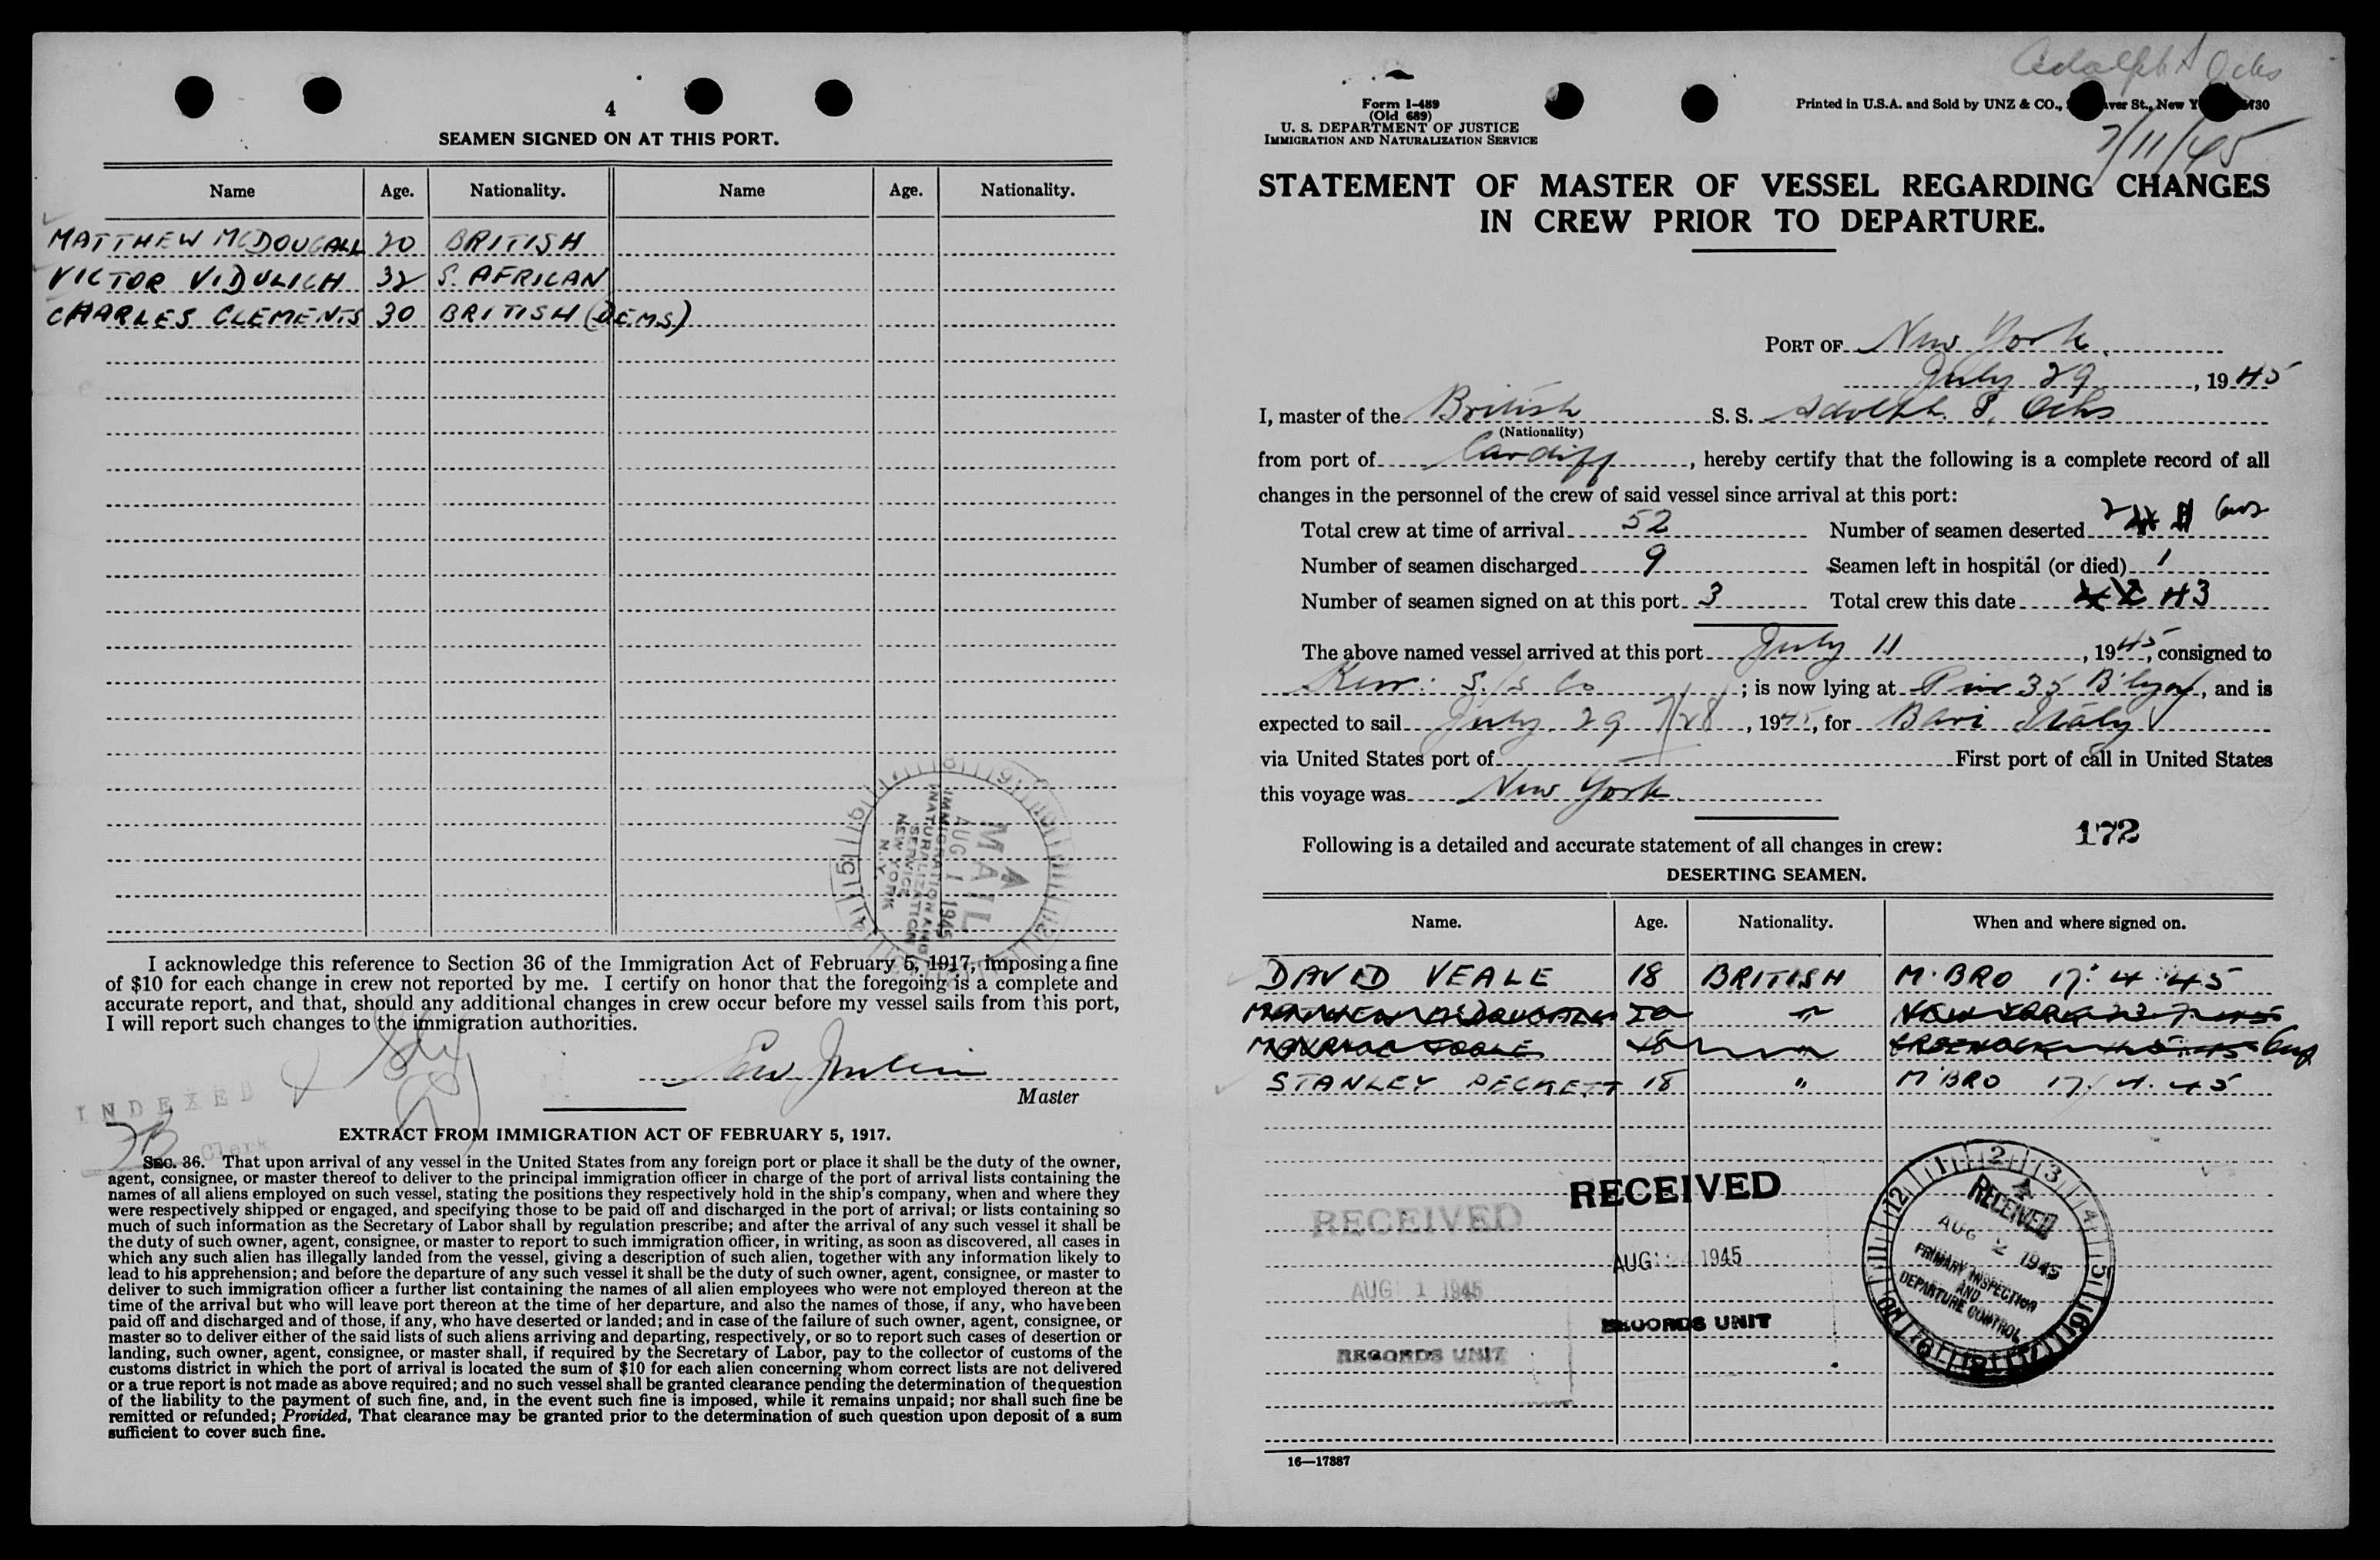 4
SEAMEN SIGNED ON AT THIS PORT.
Name Age. Nationality. Name Age. Nationality.
MATTHEW McDOUGALL 20 BRITISH
VICTOR VIDULICH 32 S. AFRICAN
CHARLES CLEMENTS 30 BRITISH (DEMS)
MAIL
AUG 1 1945
IMMIGRATION AND
NATURALIZATION
SERVICE
NEW YORK
N.Y.
I acknowledge this reference to Section 36 of the Immigration Act of February 5, 1917, imposing a fine
of $10 for each change in crew not reported by me. I certify on honor that the foregoing is a complete and
accurate report, and that, should any additional changes in crew occur before my vessel sails from this port,
I will report such changes to the immigration authorities.
Master
INDEXED
Clerk
EXTRACT FROM IMMIGRATION ACT OF FEBRUARY 5, 1917.
SEC. 36. That upon arrival of any vessel in the United States from any foreign port or place it shall be the duty of the owner,
agent, consignee, or master thereof to deliver to the principal immigration officer in charge of the port of arrival lists containing the
names of all aliens employed on such vessel, stating the positions they respectively hold in the ship's company, when and where they
were respectively shipped or engaged, and specifying those to be paid off and discharged in the port of arrival; or lists containing so
much of such information as the Secretary of Labor shall by regulation prescribe; and after the arrival of any such vessel it shall be
the duty of such owner, agent, consignee, or master to report to such immigration officer, in writing, as soon as discovered, all cases in
which any such alien has illegally landed from the vessel, giving a description of such alien, together with any information likely to
lead to his apprehension; and before the departure of any such vessel it shall be the duty of such owner, agent, consignee, or master to
deliver to such immigration officer a further list containing the names of all alien employees who were not employed thereon at the
time of the arrival but who will leave port thereon at the time of her departure, and also the names of those, if any, who have been
paid off and discharged and of those, if any, who have deserted or landed; and in case of the failure of such owner, agent, consignee, or
master so to deliver either of the said lists of such aliens arriving and departing, respectively, or so to report such cases of desertion or
landing, such owner, agent, consignee, or master shall, if required by the Secretary of Labor, pay to the collector of customs of the
customs district in which the port of arrival is located the sum of $10 for each alien concerning whom correct lists are not delivered
or a true report is not made as above required; and no such vessel shall be granted clearance pending the determination of the question
of the liability to the payment of such fine, and, in the event such fine is imposed, while it remains unpaid; nor shall such fine be
remitted or refunded; Provided, That clearance may be granted prior to the determination of such question upon deposit of a sum
sufficient to cover such fine.
Adolph S Ochs
Form I-489
(Old 689)
U. S. DEPARTMENT OF JUSTICE
IMMIGRATION AND NATURALIZATION SERVICE
Printed in U.S.A. and Sold by UNZ & CO., St., New
7/11/45
STATEMENT OF MASTER OF VESSEL REGARDING CHANGES
IN CREW PRIOR TO DEPARTURE.
PORT OF New York
July 29, 1945
I, master of the British S. S. Adolph. S. Ochs
(Nationality)
from port of Cardiff, hereby certify that the following is a complete record of all
changes in the personnel of the crew of said vessel since arrival at this port:
Total crew at time of arrival 52 Number of seamen deserted 2
Number of seamen discharged 9 Seamen left in hospital (or died) 1
Number of seamen signed on at this port 3 Total crew this date 43
The above named vessel arrived at this port July 11, 1945, consigned to
Kerr. S./S Co; is now lying at Pier 35 B'klyn, and is
expected to sail July 29 7/28, 1945, for Bari Italy
via United States port of First port of call in United States
this voyage was New York.
Following is a detailed and accurate statement of all changes in crew: 172
DESERTING SEAMEN.
Name. Age. Nationality. When and where signed on.
DAVID VEALE 18 BRITISH M'BRO 17. 4. 45
STANLEY PECKETT 18 " M'BRO 17. 4. 45
RECEIVED
AUG 1 1945
RECORDS UNIT
RECEIVED
AUG 2 1945
RECORDS UNIT
RECEIVED
AUG 2 1945
PRIMARY INSPECTION
AND
DEPARTURE CONTROL
16—17887